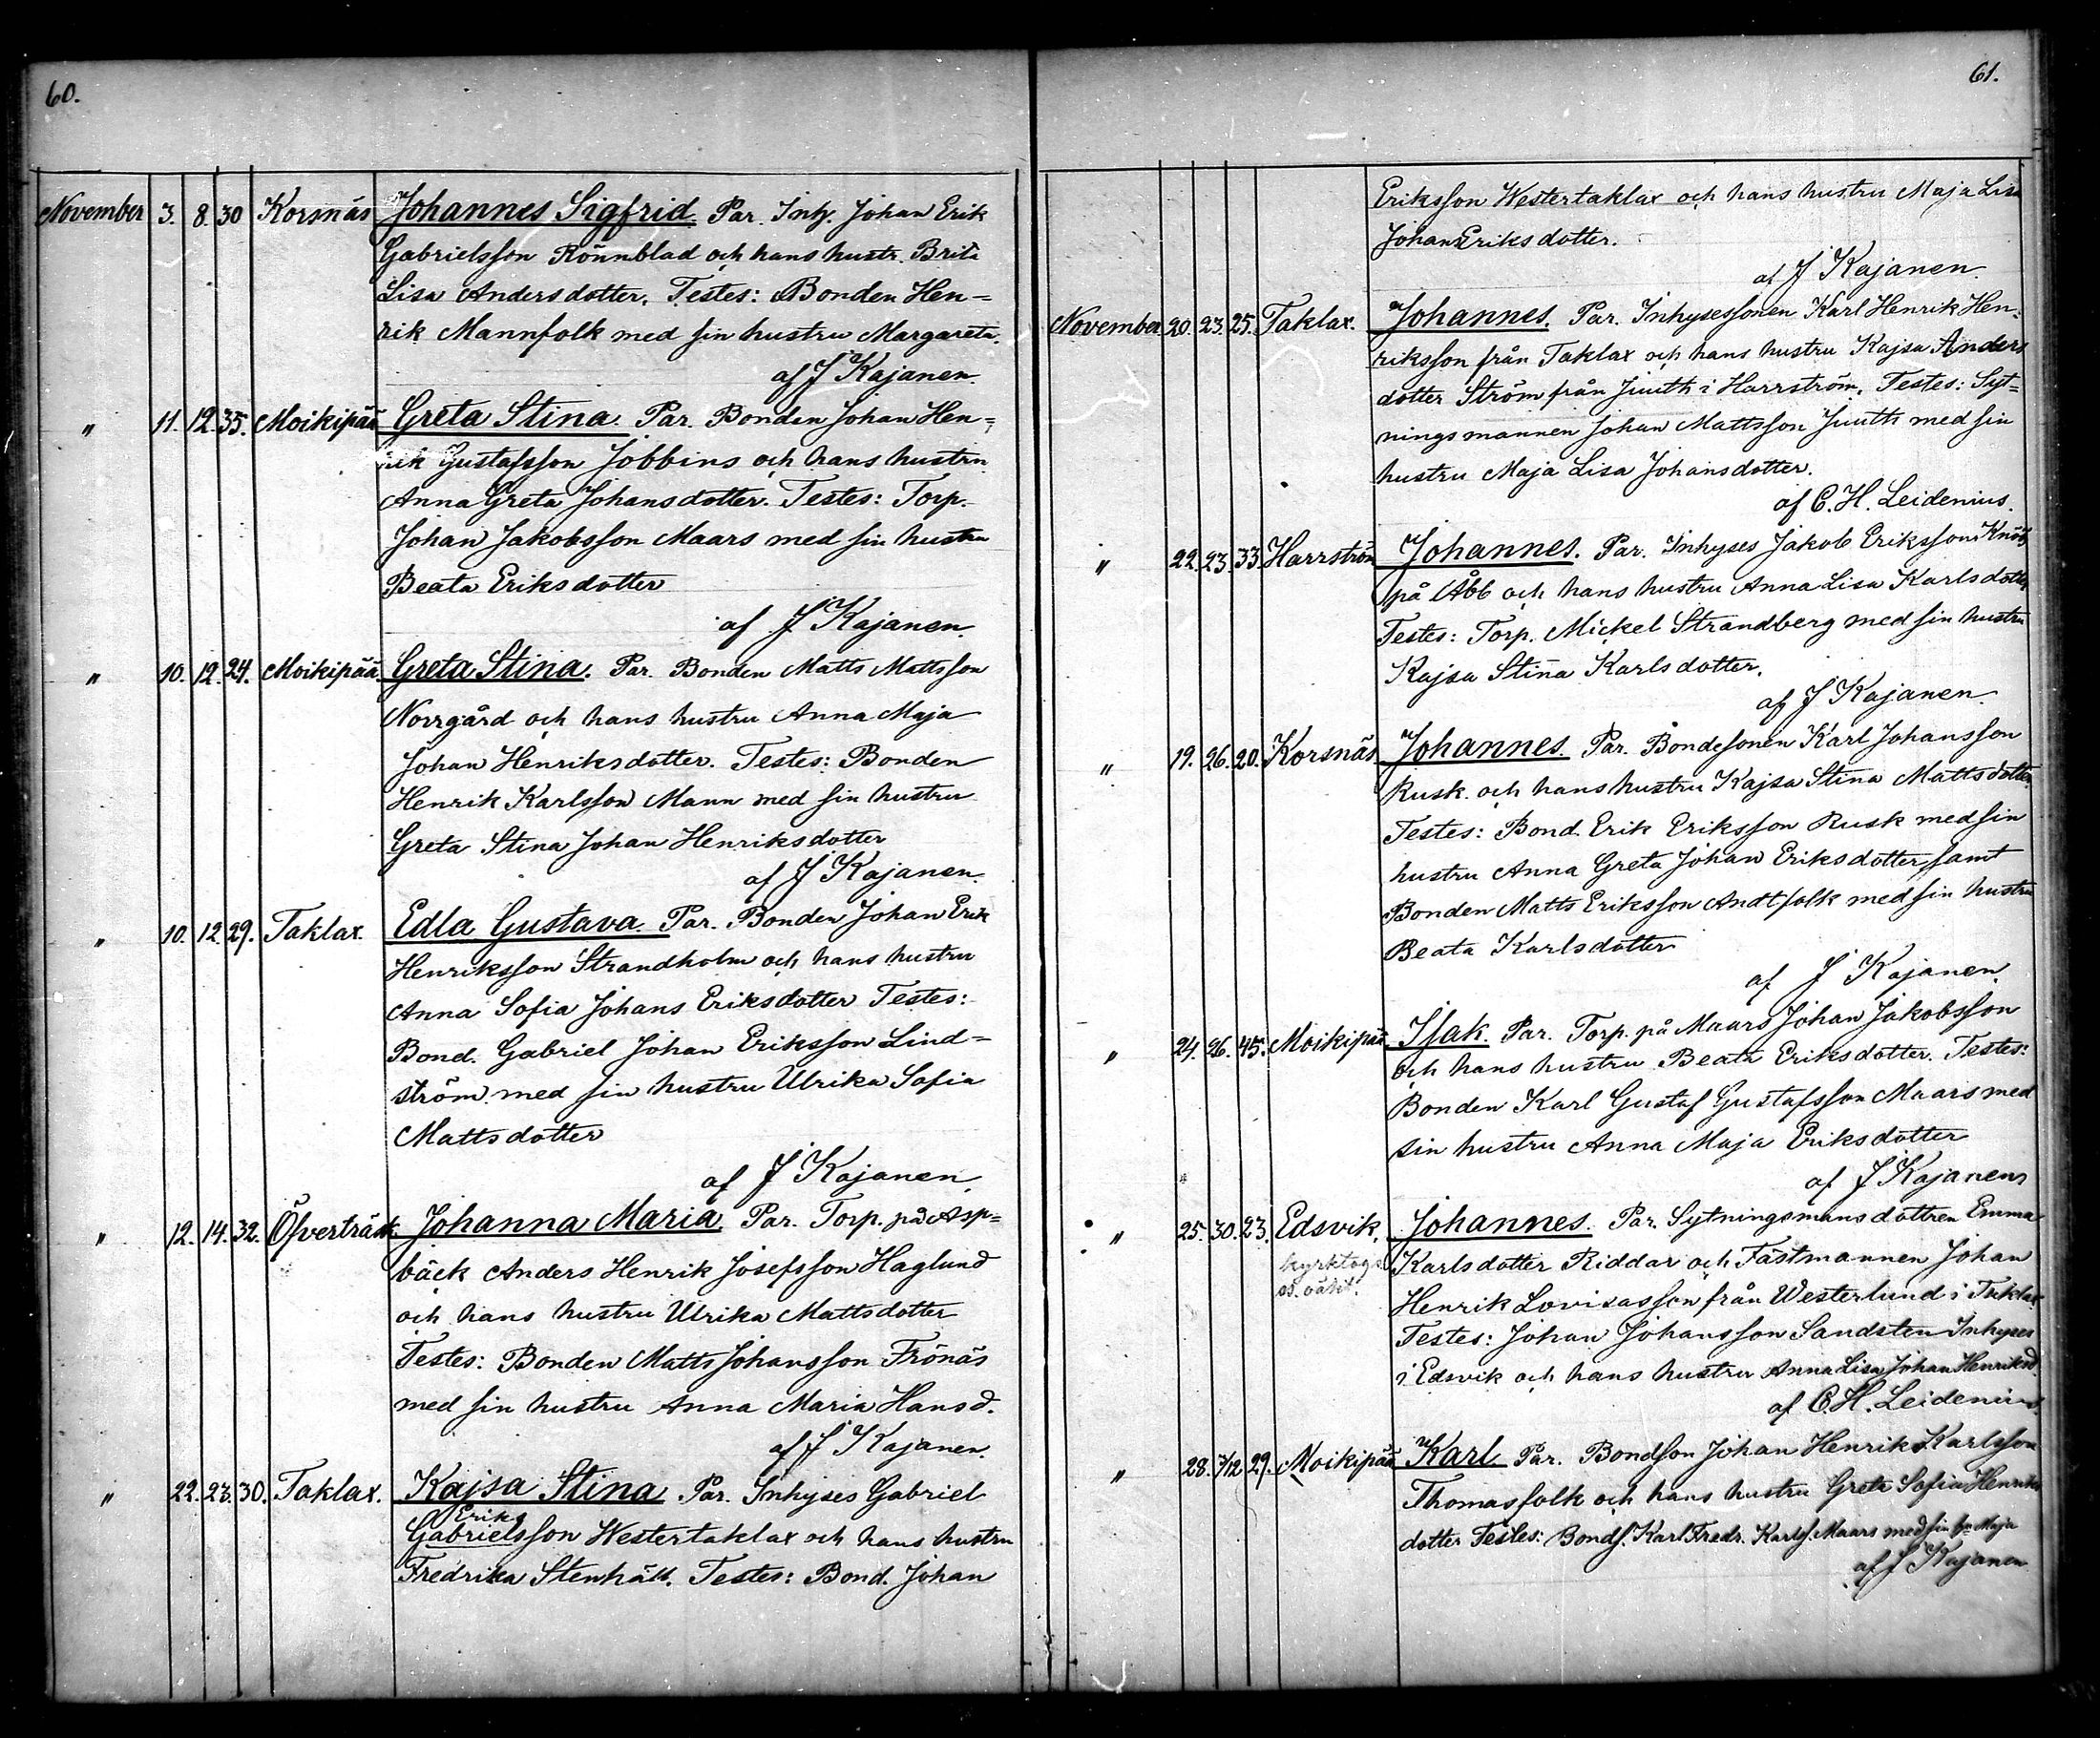 60.
November 3. 8. 30 Korsnäs Johannes Sigfrid. Par. Inh. Johan Erik
Gabrielsson Rönnblad och hans hustr. Brita
Lisa Andersdotter. Testes: Bonden Hen-
rik Mannfolk med sin hustru Margareta.
af J Kajanen.
" 11. 12. 35. Moikipää Greta Stina. Par. Bonden Johan Hen-
rik Gustafsson Jobbins och hans hustru
Anna Greta Johansdotter. Testes: Torp.
Johan Jakobsson Maars med sin hustru
Beata Eriksdotter
af J Kajanen.
" 10. 12. 24. Moikipää Greta Stina. Par. Bonden Matts Mattsson
Norrgård och hans hustru Anna Maja
Johan Henriksdotter. Testes: Bonden
Henrik Karlsson Mann med sin hustru
Greta Stina Johan Henriksdotter
af J Kajanen.
" 10. 12. 29. Taklax. Edla Gustava. Par. Bonden Johan Erik
Henriksson Strandholm och hans hustru
Anna Sofia Johans Eriksdotter Testes:
Bond. Gabriel Johan Eriksson Lind-
ström med sin hustru Ulrika Sofia
Mattsdotter
af J Kajanen.
" 12. 14. 32. Öfverträsk. Johanna Maria Par. Torp. på Asp-
bäck Anders Henrik Josefsson Haglund
och hans hustru Ulrika Mattsdotter
Testes: Bonden Matts Johansson Frönäs
med sin hustru Anna Maria Hansd.
af J Kajanen.
" 22. 23. 30. Taklax. Kajsa Stina Par. Inhyses Gabriel
Eriks
Gabrielsson Westertaklax och hans hustru
Fredrika Stenhäll. Testes: Bond. Johan
61.
Eriksson Westertaklax och hans hustru Maja Lisa
Johan Eriksdotter.
af J Kajanen.
November 20. 23. 25. Taklax. Johannes. Par. Inhysessonen Karl Henrik Hen-
riksson från Taklax och hans hustru Kajsa Anders
dotter Ström från Juuth i Harrström. Testes: Syt-
ningsmannen Johan Mattsson Juuth med sin
hustru Maja Lisa Johansdotter.
af C. H. Leidenius.
" 22. 23. 33. Harrström Johannes. Par. Inhyses Jakob Eriksson
på Åbb och hans hustru Anna Lisa Karlsdotter
Testes: Torp. Mickel Strandberg med sin hustru
Kajsa Stina Karlsdotter.
af J Kajanen.
" 19. 26. 20. Korsnäs Johannes. Par. Bondesonen Karl Johansson
Rusk. och hans hustru Kajsa Stina Mattsdotter.
Testes: Bond. Erik Eriksson Rusk med sin
hustru Anna Greta Johan Eriksdotter samt
Bonden Matts Eriksson Andtfolk med sin hustru
Beata Karlsdotter
af J Kajanen.
" 24. 26. 45. Moikipää Isak. Par. Torp. på Maars Johan Jakobsson
och hans hustru Beata Eriksdotter. Testes:
Bonden Karl Gustaf Gustafsson Maars med
sin hustru Anna Maja Eriksdotter
af J Kajanen
" 25. 30. 23. Edsvik. Johannes. Par. Sytningsmansdottren Emma
kyrktogs
Karlsdotter Riddar och Fästmannen Johan
Henrik Lovisasson från Westerlund i Taklax
Testes: Johan Johansson Sandsten Inhyses
i Edsvik och hans hustru Anna Lisa Johan Henriksd.
af C. H. Leidenius.
" 28. 7/12 29. Moikipää Karl Par. Bondson Johan Henrik Karlsson
Thomasfolk och hans hustru Greta Sofia Henriks
dotter Testes: Bonds. Karl Fredr. Karls. Maars med sin hu Maja
af J Kajanen